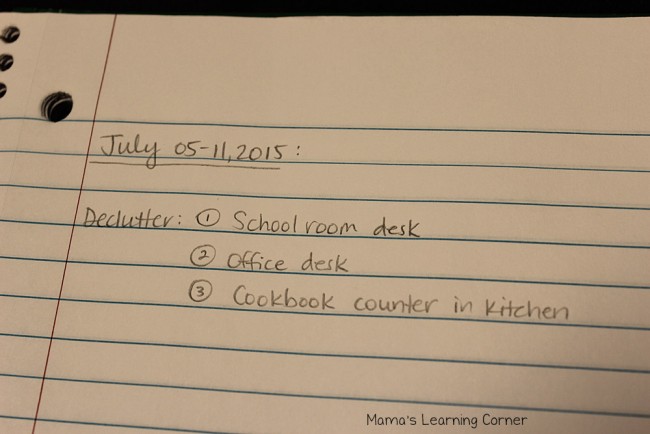 July 05-11, 2015:
Declutter: ① School room desk
② Office desk
③ Cookbook counter in kitchen
Mama's Learning Corner